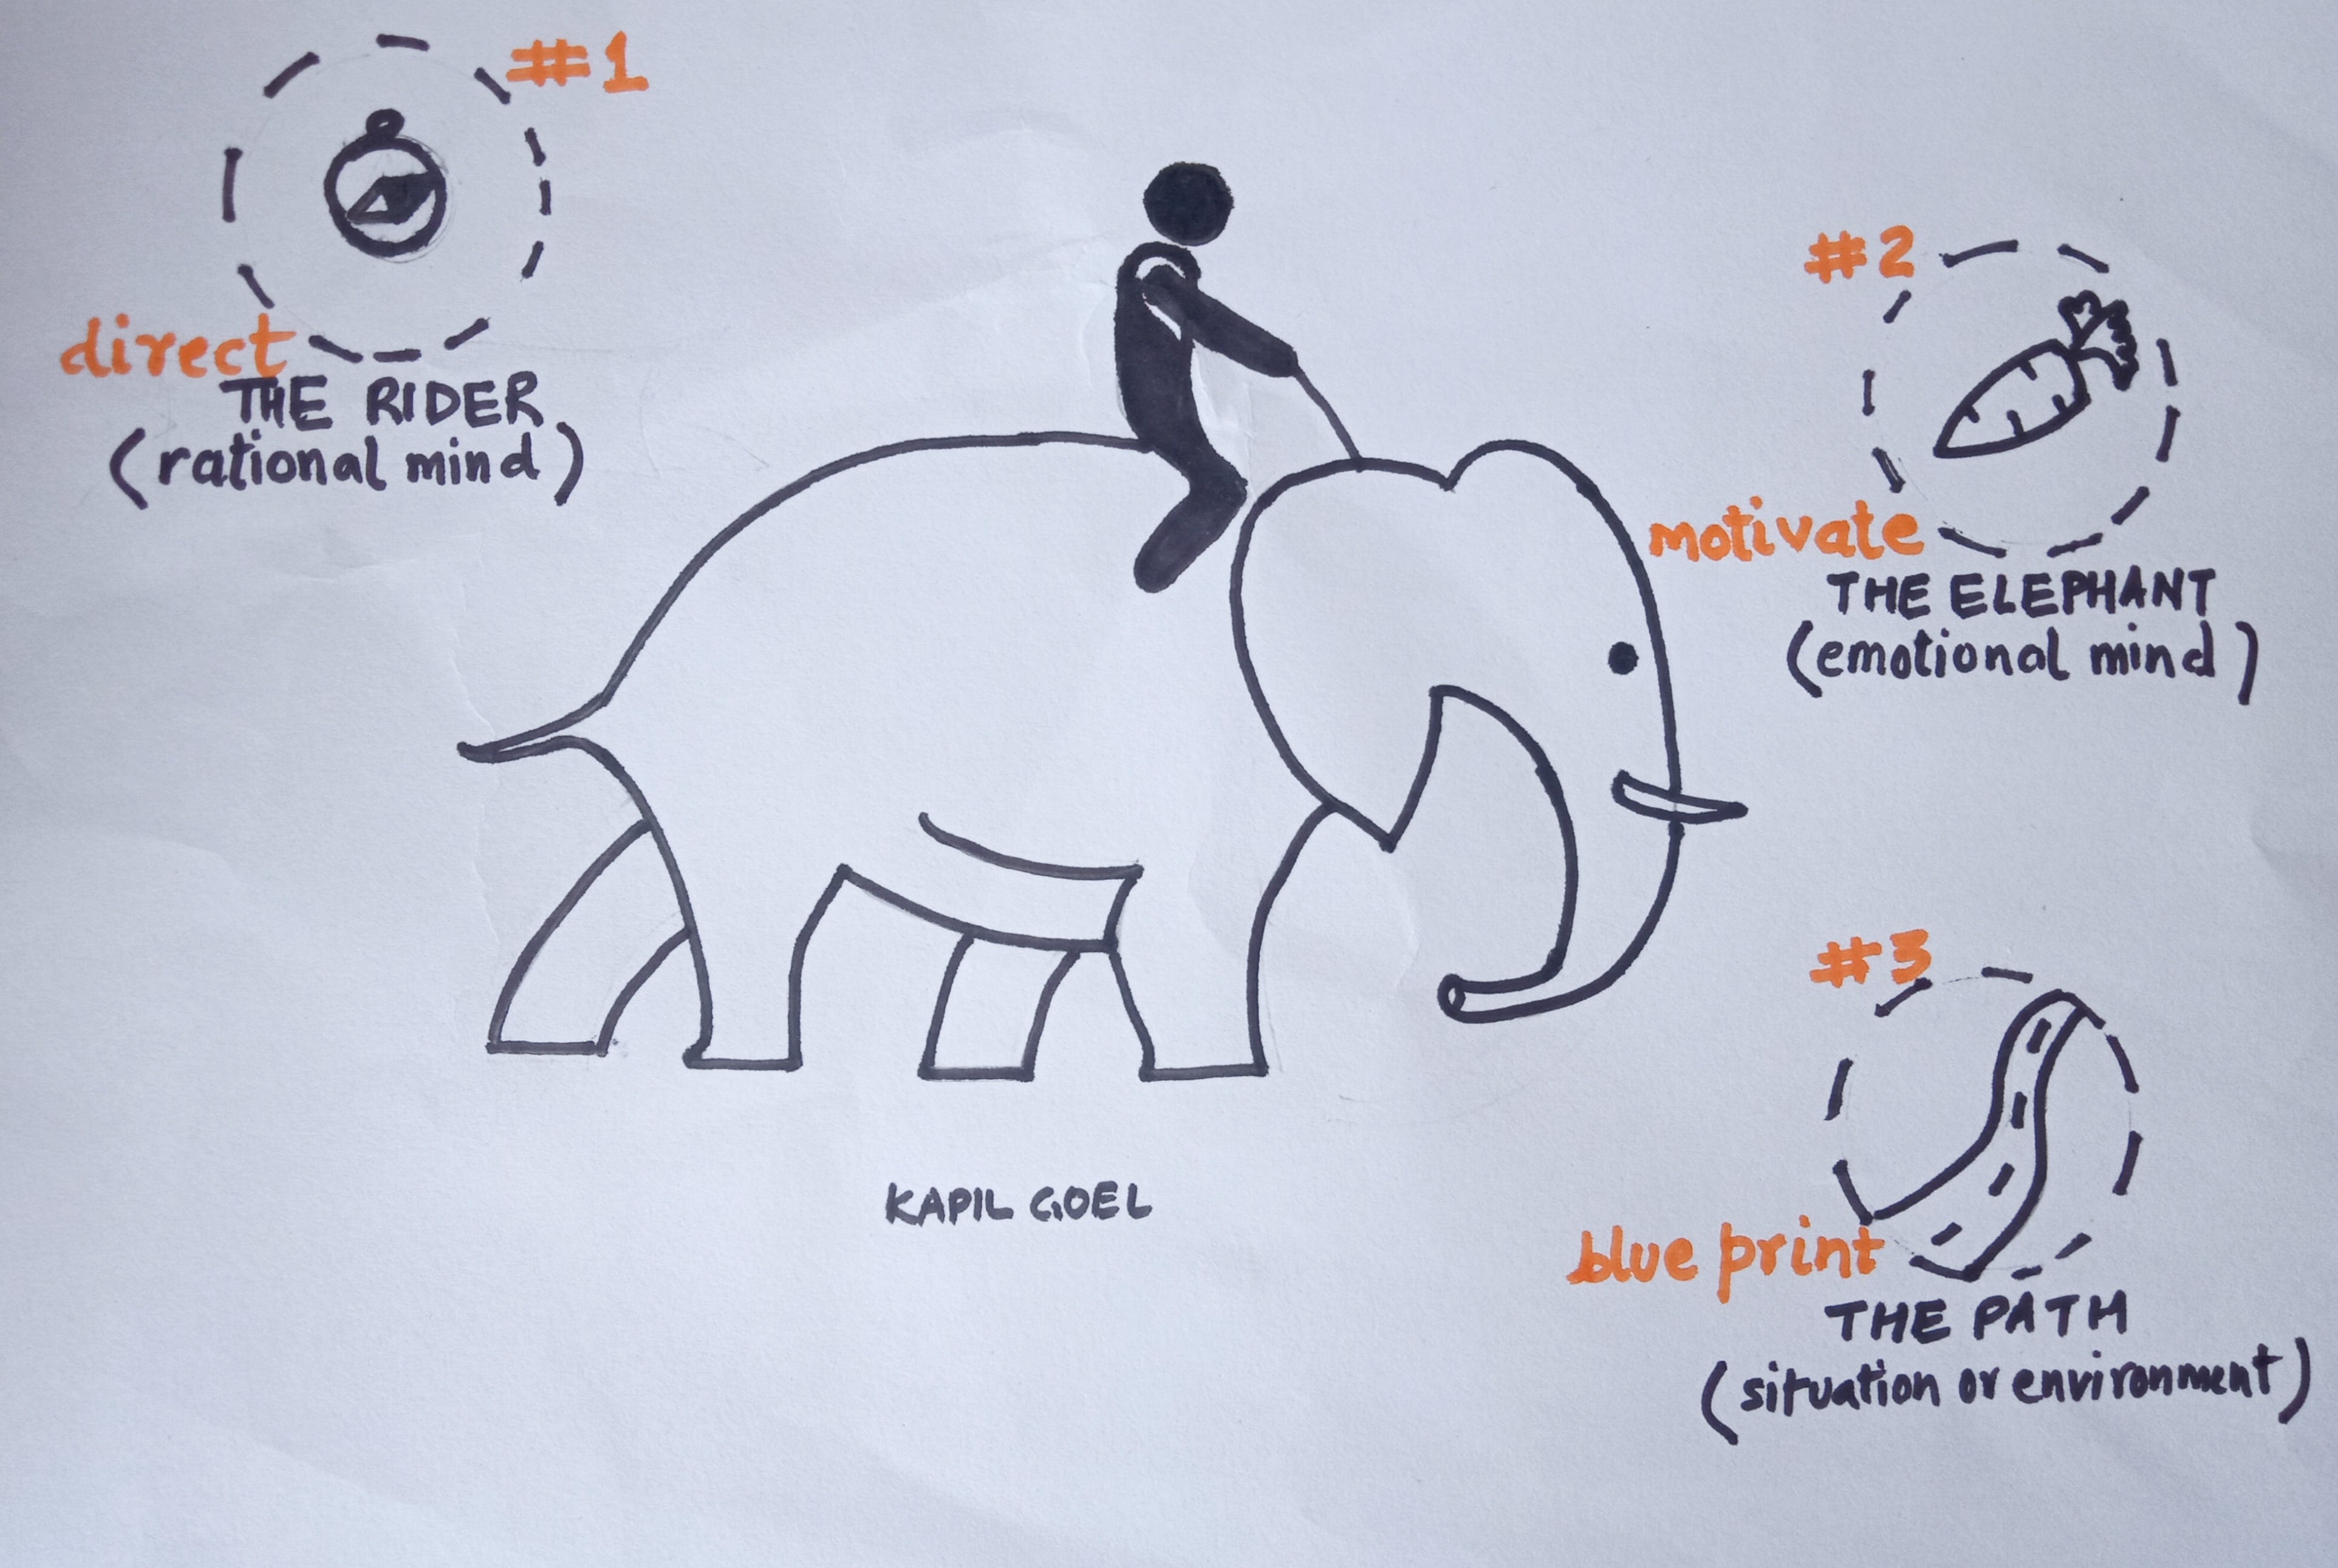 #1
direct
THE RIDER
(rational mind)
#2
motivate
THE ELEPHANT
(emotional mind)
#3
blue print
THE PATH
(situation or environment)
KAPIL GOEL